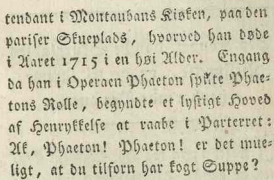 tendant i Montaubans Kisken, paa den
pariser Skueplads, hvorved han døde
i Aaret 1715 i en høi Alder. Engang
da han i Operaen Phaeton spilte Phae-
tons Rolle, begyndte et lystigt Hoved
af Henrykkelse at raabe i Parterret:
Ak, Phaeton! Phaeton! er det mue-
ligt, at du tilforn har kogt Suppe?